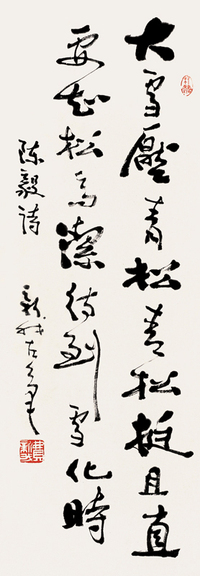 大雪压青松青松挺且直
要知松高潔待到雪化時
陈毅詩